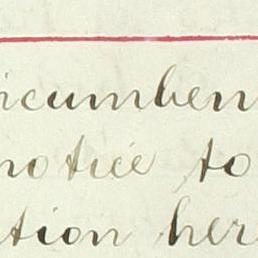 icumben
notice to
tion her